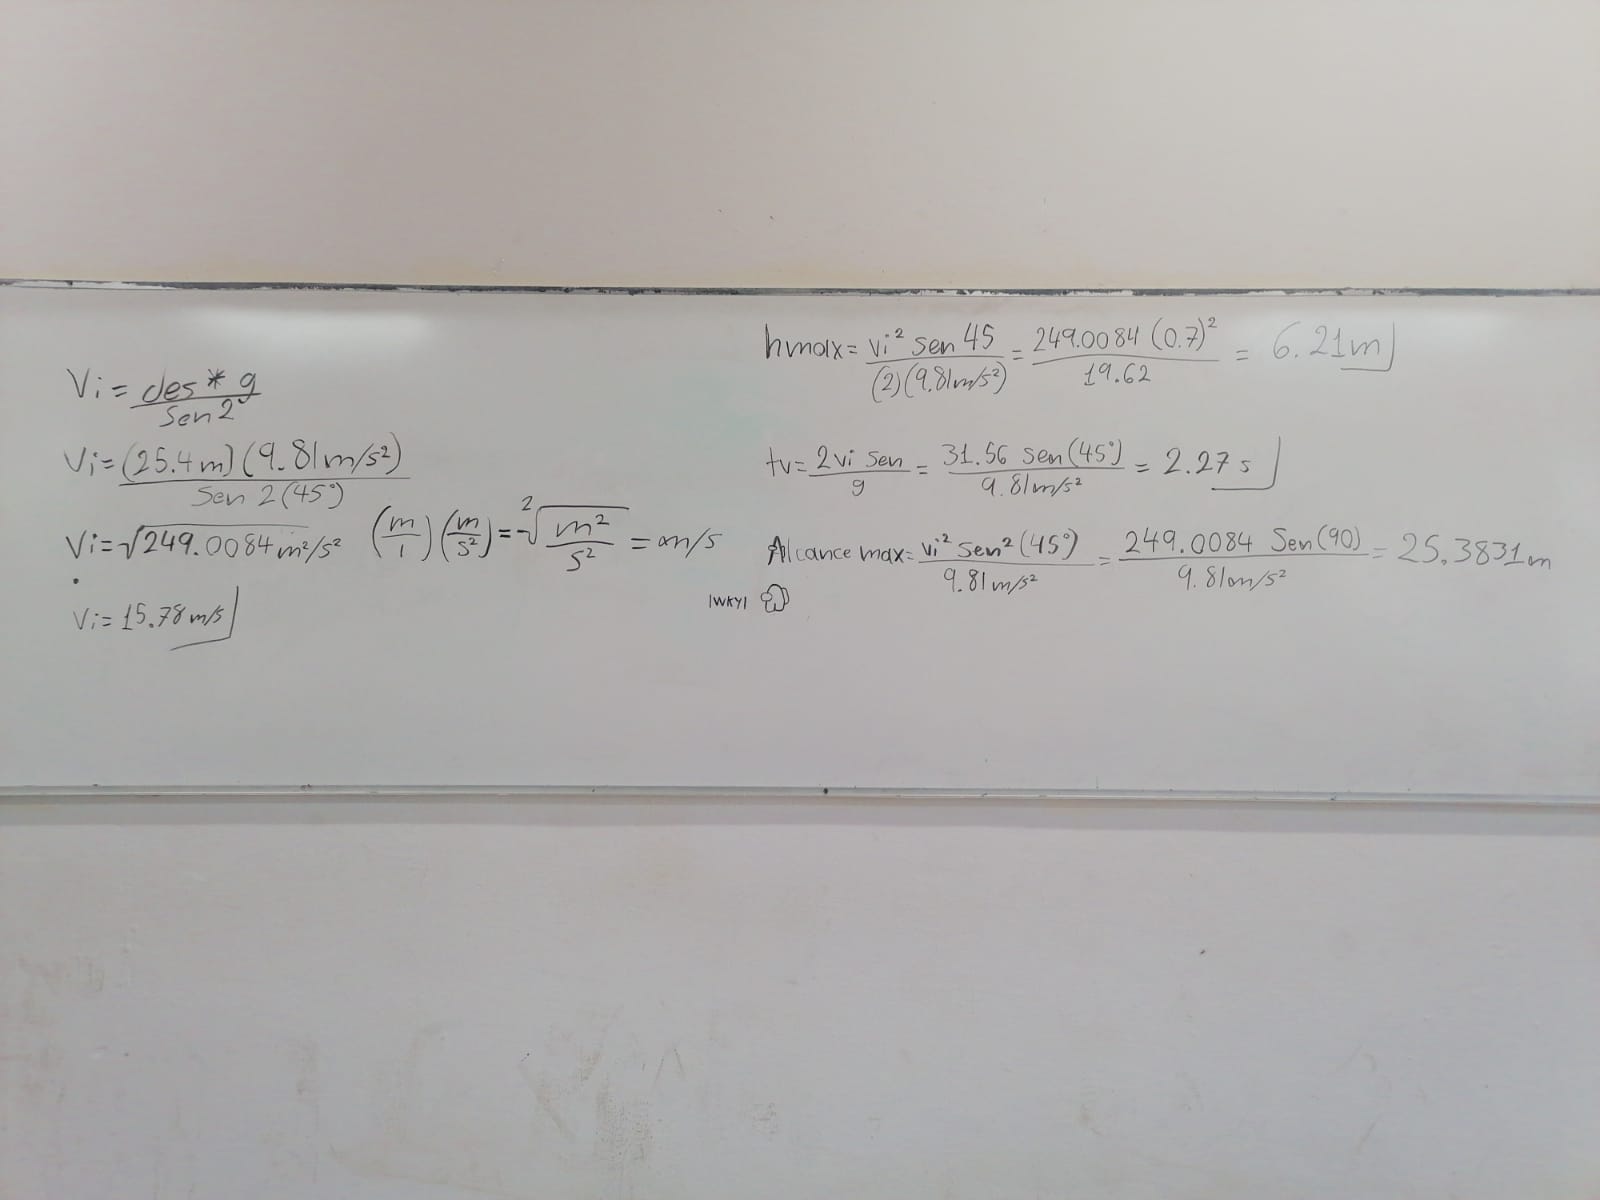 Vi = des * g / Sen 2
Vi = (25.4 m) (9.81 m/s²) / Sen 2 (45°)
Vi = √249.0084 m²/s² (m/1) (m/s²) = ²√m²/s² = m/s
Vi = 15.78 m/s
hmax = vi² sen 45 / (2)(9.81m/s²) = 249.0084 (0.7)² / 19.62 = 6.21m
tv = 2vi sen / g = 31.56 sen (45°) / 9.81m/s² = 2.27 s
Alcance max = vi² sen² (45°) / 9.81 m/s² = 249.0084 Sen(90) / 9.81m/s² = 25.3831m
|WKY|